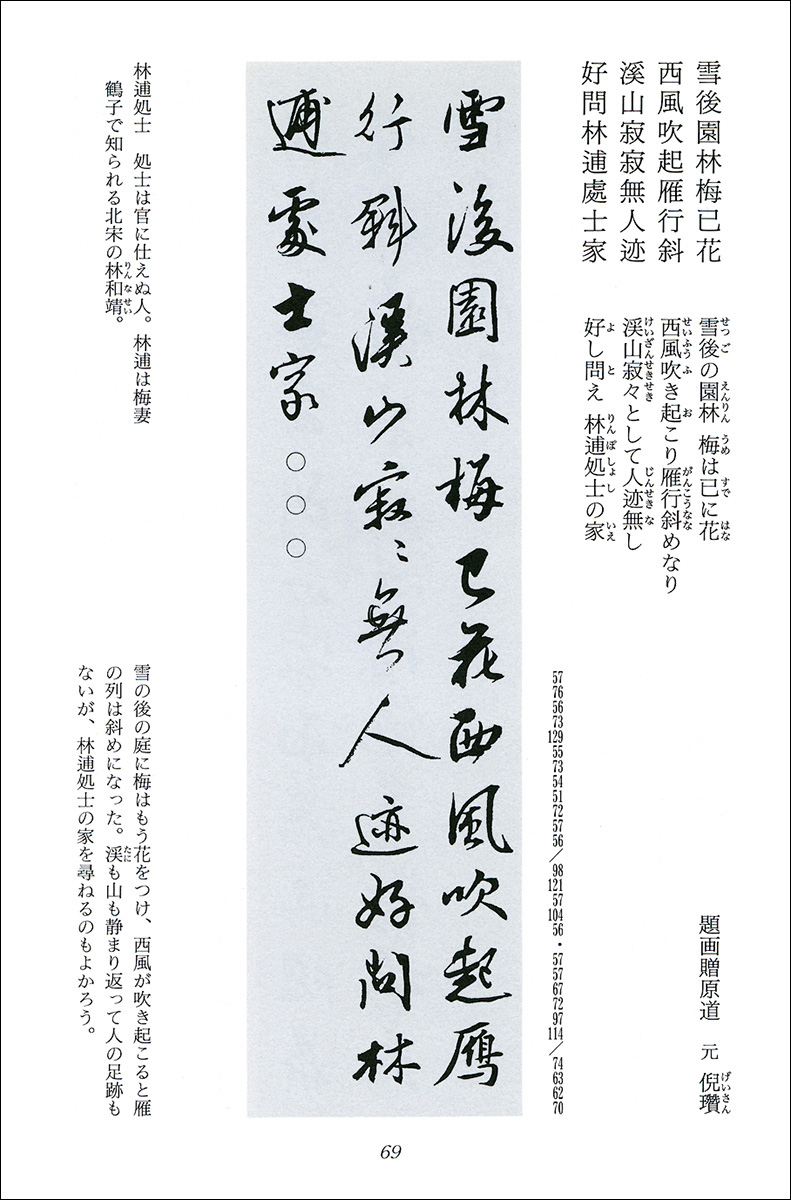 雪後園林梅已花
西風吹起雁行斜
溪山寂寂無人迹
好問林逋處士家
雪後の園林 梅は已に花
せつご えんりん うめ すで はな
西風吹き起こり雁行斜めなり
せいふうふ お がんこうなな
渓山寂々として人迹無し
けいざんせきせき じんせきな
好し問え 林逋処士の家
よ と りんぽしょし いえ
題画贈原道 元 倪瓚
げいさん
57 76 56 73 129 55 73 54 51 72 57 56／98 121 57 104 56・57 57 67 72 97 114／74 63 62 70
雪後園林梅已花西風吹起鴈
行斜溪山寂〻無人迹好問林
逋處士家○○○
林逋処士 処士は官に仕えぬ人。林逋は梅妻
鶴子で知られる北宋の林和靖。
りんなせい
雪の後の庭に梅はもう花をつけ、西風が吹き起こると雁
の列は斜めになった。渓も山も静まり返って人の足跡も
たに
ないが、林逋処士の家を尋ねるのもよかろう。
69